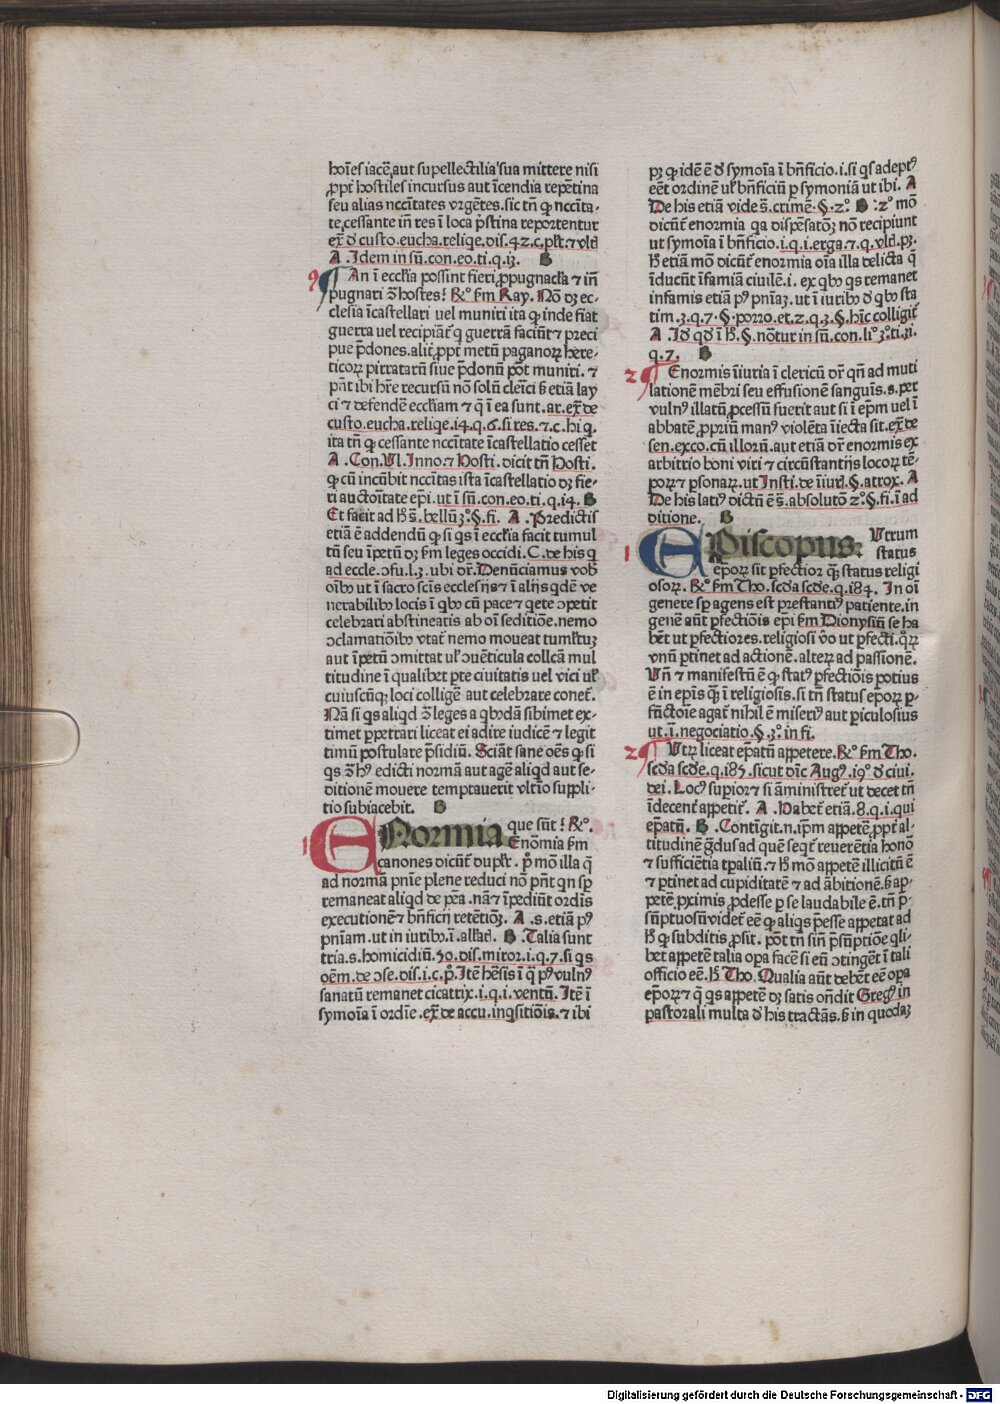 hoīes iacē.aut supellectilia sua mittere nisi
ꝓpt̄ hostiles incursus aut īcendia repētina
seu alias nccītates vrgētes.sic tn̄ ꝙ nccīta-
te cessante in res ī loca pͥstina reportentur
ex̄ ď custo.eucha.reliqe.dis.42.c.pl̄r.⁊ vlᷓ
A .Idem in sū.con.eo.ti.q.13. B
9 An ī eccl̄ia possint fieri ꝓpugnacl̄a ⁊ in̄
pugnari ꝯ hostes! R̄º. f̄m Ray. Nō dꝫ ec-
clesia īcastellari uel muniri ita ꝙ inde fiat
guerra uel recipiāt̄ q̄ guerrā faciūt ⁊ preci
pue p̄dones.alit̄ ꝓpt̄ metū paganoꝝ here-
ticoꝝ pirratarū siue p̄donū pōt muniri. ⁊
pn̄t ibi hr̄e recursū nō solū cleīci ꝫ etiā lay
ci ⁊ defendē eccl̄iam ⁊ q̄ ī ea sunt.ar.ex̄ de
custo.eucha.reliqe.14.q.6.si res.⁊ c.hi q.
ita tn̄ ꝙ cessante nccītate īcastellatio cesset
A .Con.Vl.Inno.⁊ Hosti.dicit tn̄ Hosti.
ꝙ cū incūbit nccītas ista īcastellatio dꝫ fie-
ri auctōitate epī.ut ī sū.con.eo.ti.q.14. B
Et facit ad h̄ s̄.bellū3º.§.fi. A .Predictis
etiā ē addendū ꝙ si qs ī eccl̄ia facit tumul
tū seu īpetū dꝫ f̄m leges occidi.C.de his q
ad eccle.ɔfu.l.3.ubi dr̄.Denūciamus vob̄
oībꝰ ut ī sacro scīs ecclesijs ⁊ ī alijs qdē ve
nerabilibꝰ locis ī qbꝰ cū pace ⁊ qete ɔpetit
celebrari abstineatis ab oī seditiōe.nemo
ɔclamatiōibꝰ vtat̄ nemo moueat tumltuꝫ
aut īpetū ɔmittat ul̄ ɔuēticula collcā mul
titudine ī qualibet pte ciuitatis uel vici ul̄
cuiuscūqꝫ loci colligē aut celebrare conet̄.
Nā si qs aliqd ꝯ leges a qbꝰdā sibimet ex-
timet ppetrari liceat ei adire iudicē ⁊ legit
timū postulare p̄sidiū. Sciāt sane oēs ꝙ si
qs ꝯ hꝰ edicti normā aut agē aliqd aut se-
ditionē mouere temptauerit vltīo suppli-
tio subiacebit. B
1 ENormia que sūt! R̄º.
Enōmia f̄m
canones dicūt̄ duplr̄. pº mō illa q̄
ad normā pnīe plene reduci nō pn̄t qn sp̄
remaneat aliqd de pea.nā ⁊ īpediūt ordīs
executionē ⁊ bn̄ficij retētioꝫ. A .s.etiā pꝰ
pnīam.ut in iuribꝰ.ī.all̄ad. B .Talia sunt
tria.s.homicidiū.50.dis.miror.1.q.7.si qs
oēm.de ɔse.dis.1.c.pº.Itē hēsis ī q̄ pꝰ vulnꝰ
sanatū remanet cicatrix.1.q.1.ventū.Itē ī
symoīa ī ordīe.ex̄ de accu.inqsitiōis.⁊ ibi
pꝫ ꝙ idē ē ď symoīa ī bn̄ficio.i.si qs adeptꝰ
eēt ordinē ul̄ bn̄ficiū p symoniā ut ibi. A
De his etiā vide s̄.crimē.§.2º. B :2º mō
dicūt̄ enormia qa dispēsatōꝫ nō recipiunt
ut symoīa ī bn̄ficio.1.q.1.erga.⁊ q.vlᷓ.pꝫ.
h̄ etiā mō dicūt̄ enormia oīa illa delicta q̄
īducūt īfamiā ciuilē.i.ex qbꝰ qs remanet
infamis etiā pꝰ pnīaꝫ.ut ī iuribꝰ ď qbꝰ sta
tim.3.q.7.§.porro.et.2.q.3.§.hīc colligit̄
A .Id̄ qd̄ ī h̄.§.nōtur in sū.con.li.3º.ti.31.
q.7. B
2 Enormis īiuria ī clericū dr̄ qn̄ ad muti
lationē mēbri seu effusionē sanguīs.s.per
vulnꝰ illatū ꝓcessū fuerit aut si ī ep̄m uel ī
abbatē ꝓpriū manꝰ violēta īiecta sit.ex̄ de
sen.exco.cū illorū.aut etiā dr̄ enormis ex
arbitrio boni viri ⁊ circūstantijs locorꝝ tē-
porꝝ ⁊ psonarꝝ.ut Insti.de iīurd.§.atrox. A
De his latiꝰ dictū ē s̄.absolutō 2º.§.fi.ī ad
ditione. B
1 EPiscopus. Vtrum
status
ep̄orꝝ sit pfectior qꝫ status religi
osorꝝ. R̄º f̄m Tho.scd̄a scd̄e.q.184. In oī
genere sp̄ agens est prestantiꝰ patiente.in
genē aūt pfectiōis epī f̄m Dionysiū se ha
bēt ut pfectiores.religiosi v̄o ut pfecti.q̄rꝝ
vnū ptinet ad actionē.alterꝝ ad passionē.
Vn̄ ⁊ manifestū ē ꝙ statꝰ pfectiōis potius
ē in epīs qꝫ ī religiosis.si tn̄ status ep̄orꝝ p-
fūctoīe agat̄ nihil ē miseriꝰ aut piculosius
ut.ī.negociatio.§.3º.in fi.
2 Vtꝝ liceat ep̄atū appetere.R̄º f̄m Tho.
scd̄a scd̄e.q.185.sicut dīc Augꝰ.19º ď ciui.
dei.Locꝰ supior ⁊ si āministret̄ ut decet tn̄
īdecent̄ appetit̄. A .Habet̄ etiā.8.q.1.qui
ep̄atū. B .Contīgit.n.ip̄m appetē ꝓpt̄ al-
titudinē ḡdus ad quē seqt̄ reuerētia honō
⁊ sufficiētia tpaliū.⁊ h̄ mō appetē illicitū ē
⁊ ptinet ad cupiditatē ⁊ ad ābitionē.ꝫ ap-
petē ꝓximis ꝓdesse p se laudabile ē.tn̄ p̄-
sūptuosū videt̄ eē ꝙ aliqs p̄esse appetat ad
h̄ ꝙ subditis ꝓsit. pōt tn̄ sin̄ p̄sūptiōe qli-
bet appetē talia opa facē si eū ɔtingēt ī tali
officio eē.h̄ Tho.Qualia aūt debēt eē opa
ep̄orꝝ ⁊ q̄ qs appetē dꝫ satis on̄dit Gregꝰ in
pastorali multa ď his tractās.ꝫ in quodaꝫ
Digitalisierung gefördert durch die Deutsche Forschungsgemeinschaft - DFG